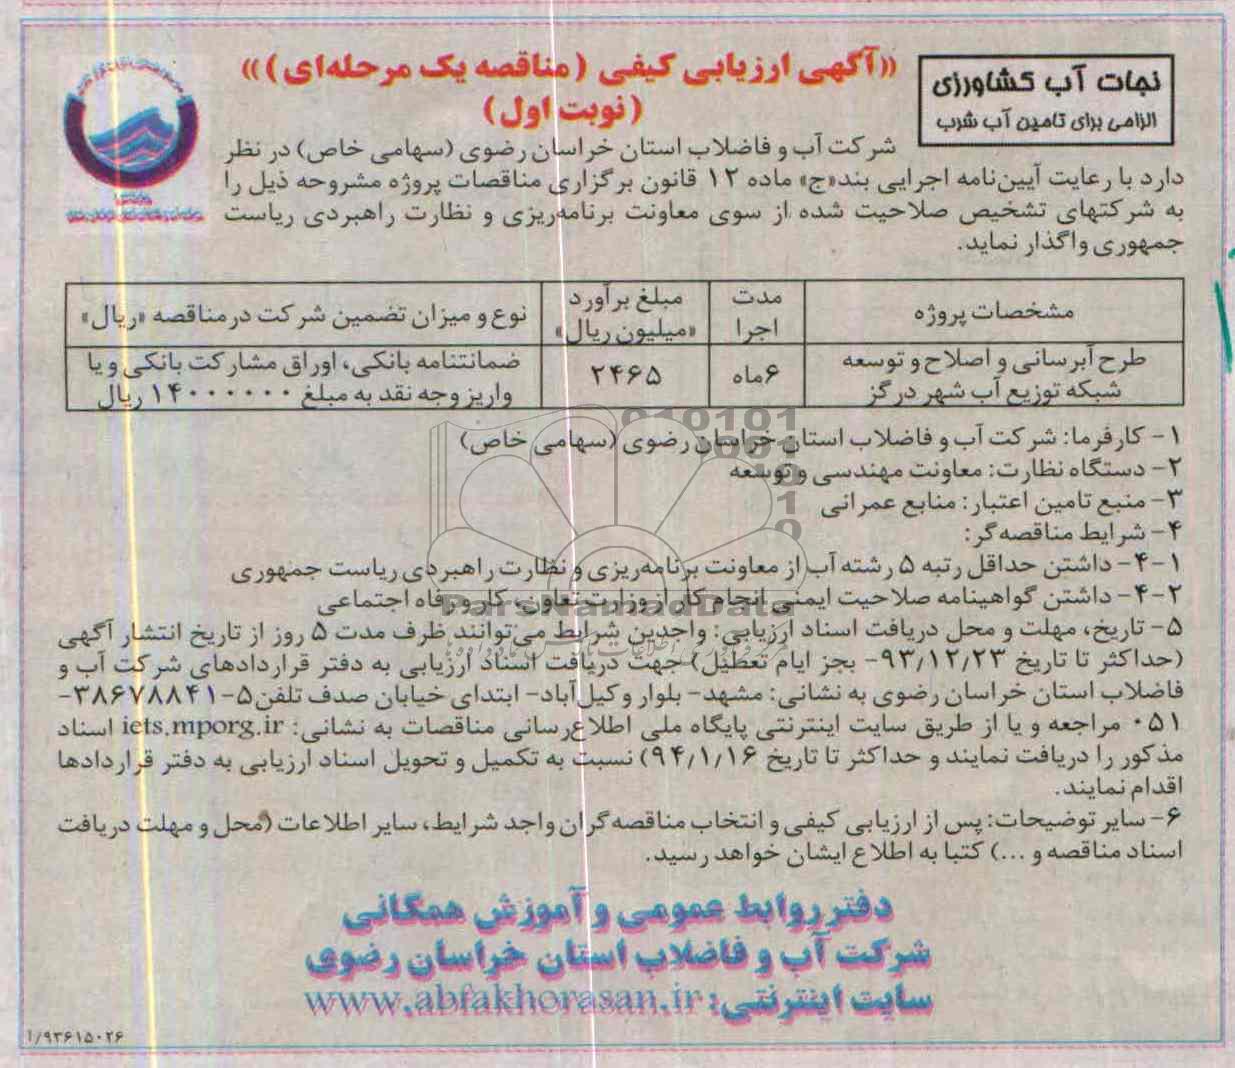 نجات آب کشاورزی
الزامی برای تامین آب شرب
«آگهی ارزیابی کیفی (مناقصه یک مرحله‌ای)»
(نوبت اول)
شرکت آب و فاضلاب استان خراسان رضوی (سهامی خاص) در نظر
دارد با رعایت آیین‌نامه اجرایی بند«ج» ماده ۱۲ قانون برگزاری مناقصات پروژه مشروحه ذیل را
به شرکتهای تشخیص صلاحیت شده از سوی معاونت برنامه‌ریزی و نظارت راهبردی ریاست
جمهوری واگذار نماید.
مشخصات پروژه | مدت اجرا | مبلغ برآورد «میلیون ریال» | نوع و میزان تضمین شرکت در مناقصه «ریال»
طرح آبرسانی و اصلاح و توسعه شبکه توزیع آب شهر درگز | ۶ماه | ۲۴۶۵ | ضمانتنامه بانکی، اوراق مشارکت بانکی و یا واریز وجه نقد به مبلغ ۱۴۰۰۰۰۰۰۰ ریال
۱- کارفرما: شرکت آب و فاضلاب استان خراسان رضوی (سهامی خاص)
۲- دستگاه نظارت: معاونت مهندسی و توسعه
۳- منبع تامین اعتبار: منابع عمرانی
۴- شرایط مناقصه‌گر:
۴-۱- داشتن حداقل رتبه ۵ رشته آب از معاونت برنامه‌ریزی و نظارت راهبردی ریاست جمهوری
۴-۲- داشتن گواهینامه صلاحیت ایمنی انجام کار از وزارت تعاون، کار و رفاه اجتماعی
۵- تاریخ، مهلت و محل دریافت اسناد ارزیابی: واجدین شرایط می‌توانند ظرف مدت ۵ روز از تاریخ انتشار آگهی
(حداکثر تا تاریخ ۹۳/۱۲/۲۳- بجز ایام تعطیل) جهت دریافت اسناد ارزیابی به دفتر قراردادهای شرکت آب و
فاضلاب استان خراسان رضوی به نشانی: مشهد- بلوار وکیل‌آباد- ابتدای خیابان صدف تلفن۵-۳۸۶۷۸۸۴۱-
۰۵۱ مراجعه و یا از طریق سایت اینترنتی پایگاه ملی اطلاع‌رسانی مناقصات به نشانی: iets.mporg.ir اسناد
مذکور را دریافت نمایند و حداکثر تا تاریخ ۹۴/۱/۱۶) نسبت به تکمیل و تحویل اسناد ارزیابی به دفتر قراردادها
اقدام نمایند.
۶- سایر توضیحات: پس از ارزیابی کیفی و انتخاب مناقصه‌گران واجد شرایط، سایر اطلاعات (محل و مهلت دریافت
اسناد مناقصه و ...) کتبا به اطلاع ایشان خواهد رسید.
دفتر روابط عمومی و آموزش همگانی
شرکت آب و فاضلاب استان خراسان رضوی
سایت اینترنتی: www.abfakhorasan.ir
۱/۹۳۶۱۵۰۲۶
ParsNamadData